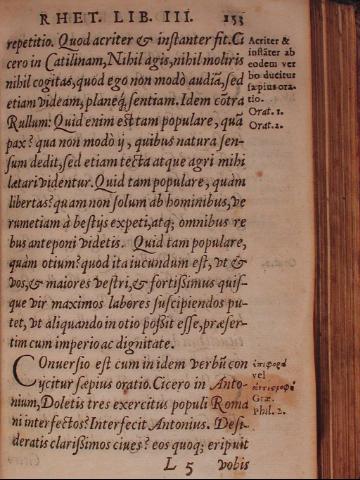 RHET. LIB. III. 153
repetitio. Quod acriter & instanter fit. Ci
cero in Catilinam, Nihil agis, nihil moliris
nihil cogitas, quod ego non modò audiã, sed
etiam videam, planeq́; sentiam. Idem cõtra
Rullum: Quid enim est tam populare, quã
pax? qua non modò ij, quibus natura sen-
sum dedit, sed etiam tecta atque agri mihi
lætari videntur. Quid tam populare, quàm
libertas? quam non solum ab hominibus, ve
rumetiam à bestijs expeti, atq; omnibus re
bus anteponi videtis. Quid tam populare,
quàm otium? quod ita iucundum est, vt &
vos, & maiores vestri, & fortissimus quis-
que vir maximos labores suscipiendos pu-
tet, vt aliquando in otio possit esse, præser-
tim cum imperio ac dignitate.
Conuersio est cum in idem verbũ con
ijcitur sæpius oratio. Cicero in Anto-
nium, Doletis tres exercitus populi Roma
ni interfectos? Interfecit Antonius. Desi-
deratis clarissimos ciues? eos quoq; eripuit
L 5 vobis
Acriter &
instãter ab
eodem ver
bo ducitur
sæpius ora
tio.
Orat. 1.
Orat. 2.
ἐπιφορὰ
vel
ἀντιστροφὴ
Græ.
Phil. 2.